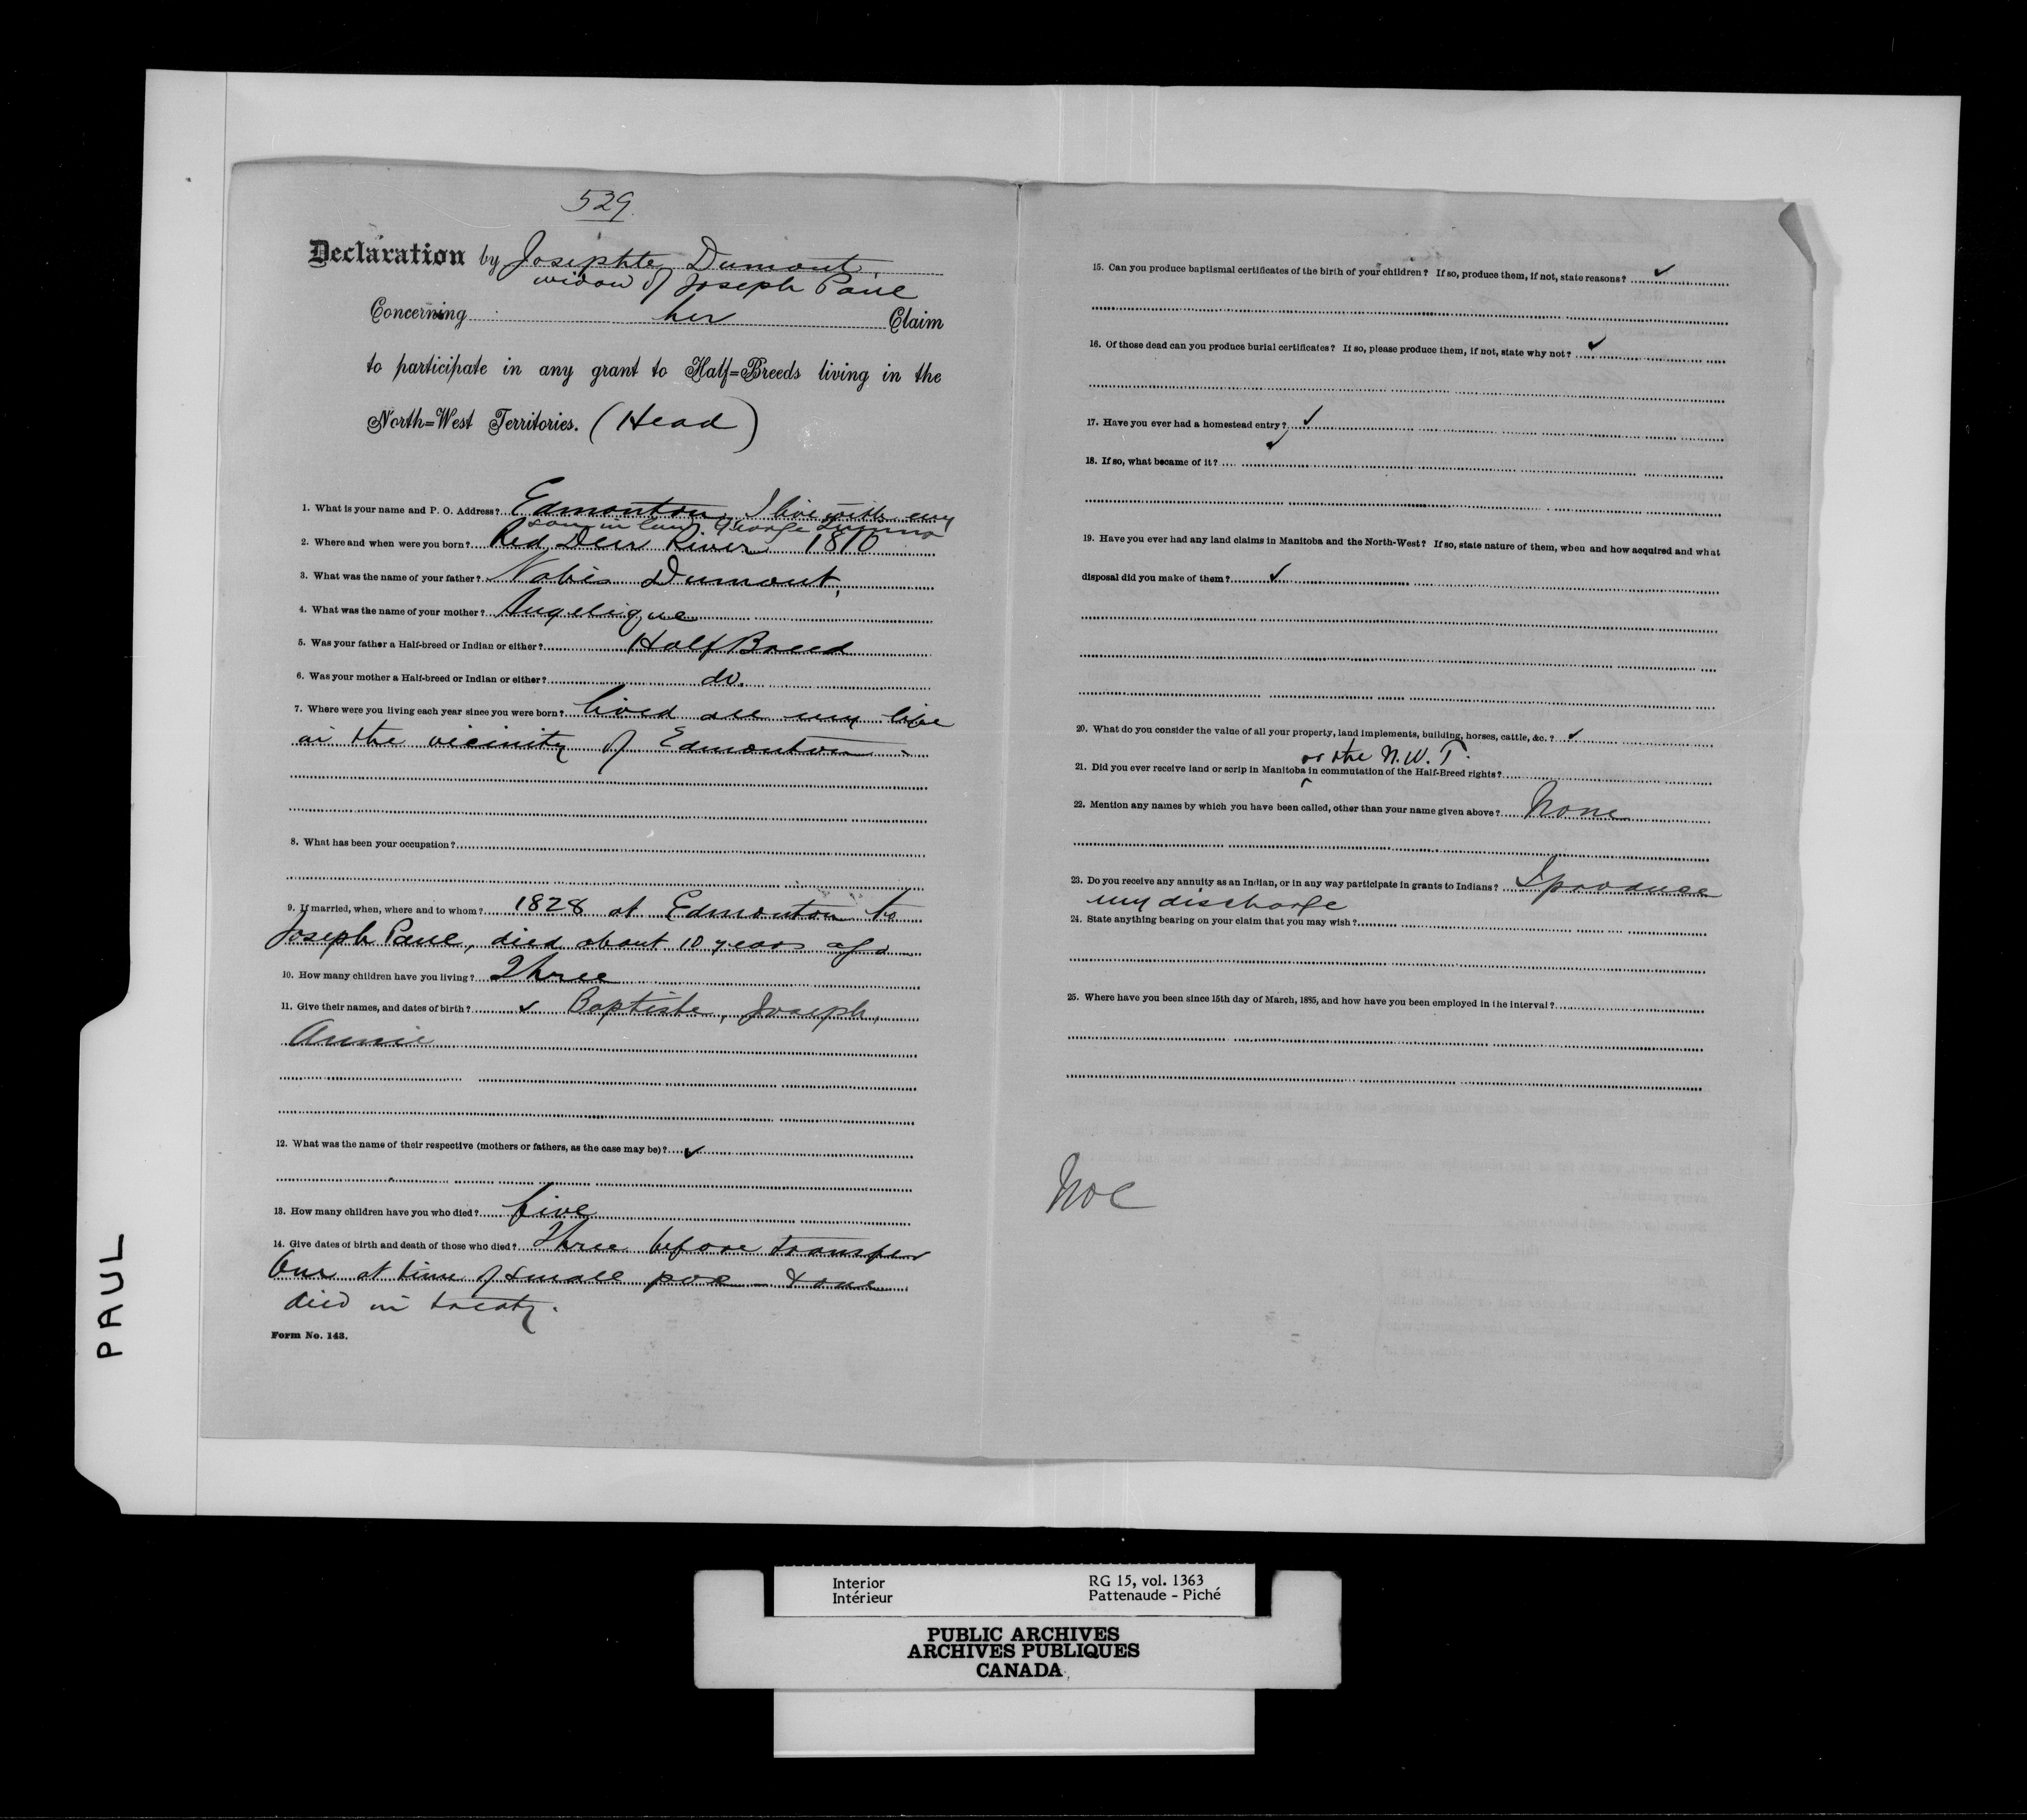 529.
Declaration by Josephte Dumont,
widow of Joseph Paul
Concerning her Claim
to participate in any grant to Half=Breeds living in the
North=West Territories. (Head)
1. What is your name and P. O. Address? Edmonton, I live with my
son in law George
2. Where and when were you born? Red Deer River 1810
3. What was the name of your father? Dumont,
4. What was the name of your mother? Angelique
5. Was your father a Half-breed or Indian or either? Half Breed
6. Was your mother a Half-breed or Indian or either? do.
7. Where were you living each year since you were born? lived all my life
in the vicinity of Edmonton
8. What has been your occupation?
9. If married, when, where and to whom? 1828 at Edmonton to
Joseph Paul, died about 10 years ago
10. How many children have you living? Three
11. Give their names, and dates of birth? ✓ Baptiste, Joseph,
Annie
12. What was the name of their respective (mothers or fathers, as the case may be)? ✓
13. How many children have you who died? five
14. Give dates of birth and death of those who died? Three before transfer
One at time of small pox & one
died in treaty.
Form No. 143.
15. Can you produce baptismal certificates of the birth of your children? If so, produce them, if not, state reasons? ✓
16. Of those dead can you produce burial certificates? If so, please produce them, if not, state why not? ✓
17. Have you ever had a homestead entry? ✓
18. If so, what became of it? ✓
19. Have you ever had any land claims in Manitoba and the North-West? If so, state nature of them, when and how acquired and what
disposal did you make of them? ✓
20. What do you consider the value of all your property, land implements, building, horses, cattle, &c.? ✓
or the N.W.T.
21. Did you ever receive land or scrip in Manitoba in commutation of the Half-Breed rights?
22. Mention any names by which you have been called, other than your name given above? None
23. Do you receive any annuity as an Indian, or in any way participate in grants to Indians? I produce
my discharge
24. State anything bearing on your claim that you may wish?
25. Where have you been since 15th day of March, 1885, and how have you been employed in the interval?
PAUL
Interior
Intérieur
RG 15, vol. 1363
Pattenaude - Piché
PUBLIC ARCHIVES
ARCHIVES PUBLIQUES
CANADA